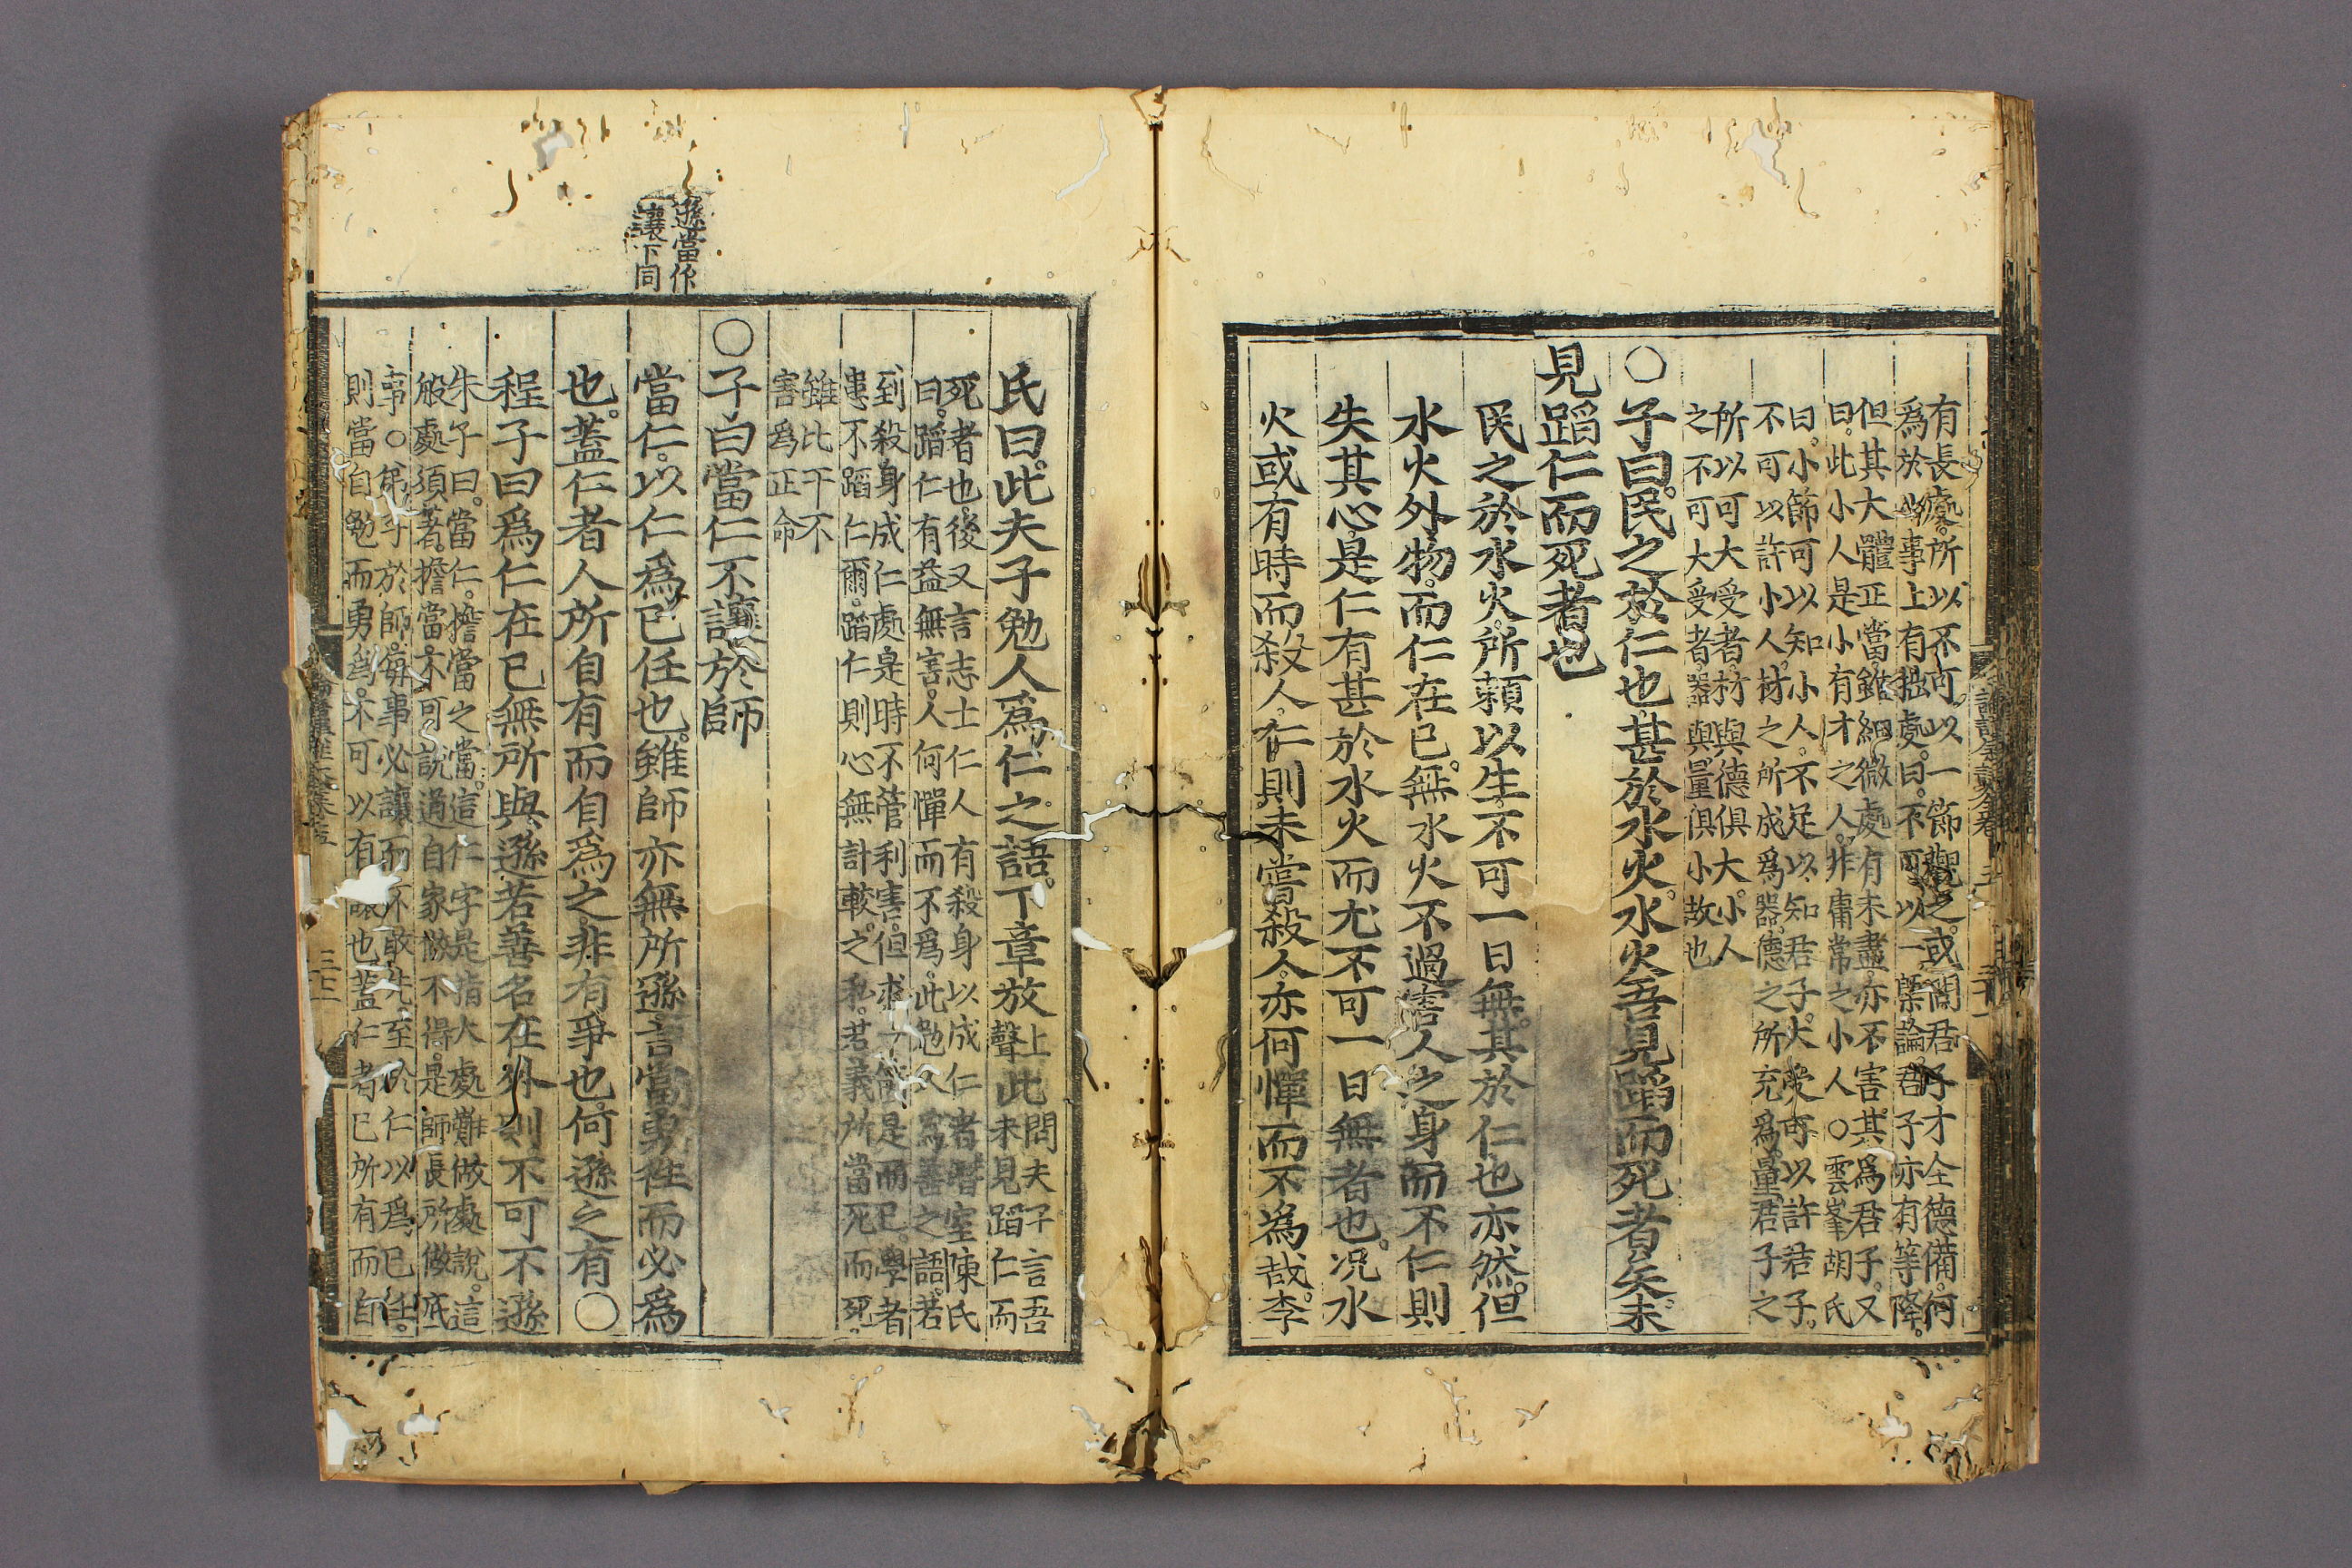 有長處所以不可以一節觀之或問君子才全德備何
爲於此事上有拙處曰不可以一槩論君子亦有等降
但其大體正當雖細微處有未盡亦不害其爲君子又
曰此小人是小有才之人非庸常之小人○雲峯胡氏
曰小節可以知小人不足以知君子大受可以許君子
不可以許小人材之所成爲器德之所充爲量君子之
所以可大受者材與德俱大小人
之不可大受者器與量俱小故也
○子曰民之於仁也甚於水火水火吾見蹈而死者矣未
見蹈仁而死者也
民之於水火所賴以生不可一日無其於仁也亦然但
水火外物而仁在己無水火不過害人之身而不仁則
失其心是仁有甚於水火而尤不可一日無者也况水
火或有時而殺人仁則未嘗殺人亦何憚而不爲哉李
氏曰此夫子勉人爲仁之語下章放上聲此問夫子言吾
未見蹈仁而
死者也後又言志士仁人有殺身以成仁者潛室陳氏
曰蹈仁有益無害人何憚而不爲此勉人爲善之語若
到殺身成仁處是時不管利害但求一箇是而已學者
患不蹈仁爾蹈仁則心無計較之私若義所當死而死
雖比干不
害爲正命
○子曰當仁不讓於師
當仁以仁爲己任也雖師亦無所遜言當勇往而必爲
也蓋仁者人所自有而自爲之非有爭也何遜之有○
程子曰爲仁在己無所與遜若善名在外則不可不遜
朱子曰當仁擔當之當這仁字是指大處難做處說這
般處須著擔當不可說過自家做不得是師長所做底
事○弟子於師每事必讓而不敢先至於仁以爲己任
則當自勉而勇爲不可以有讓也蓋仁者己所有而自
遜當作
讓下同